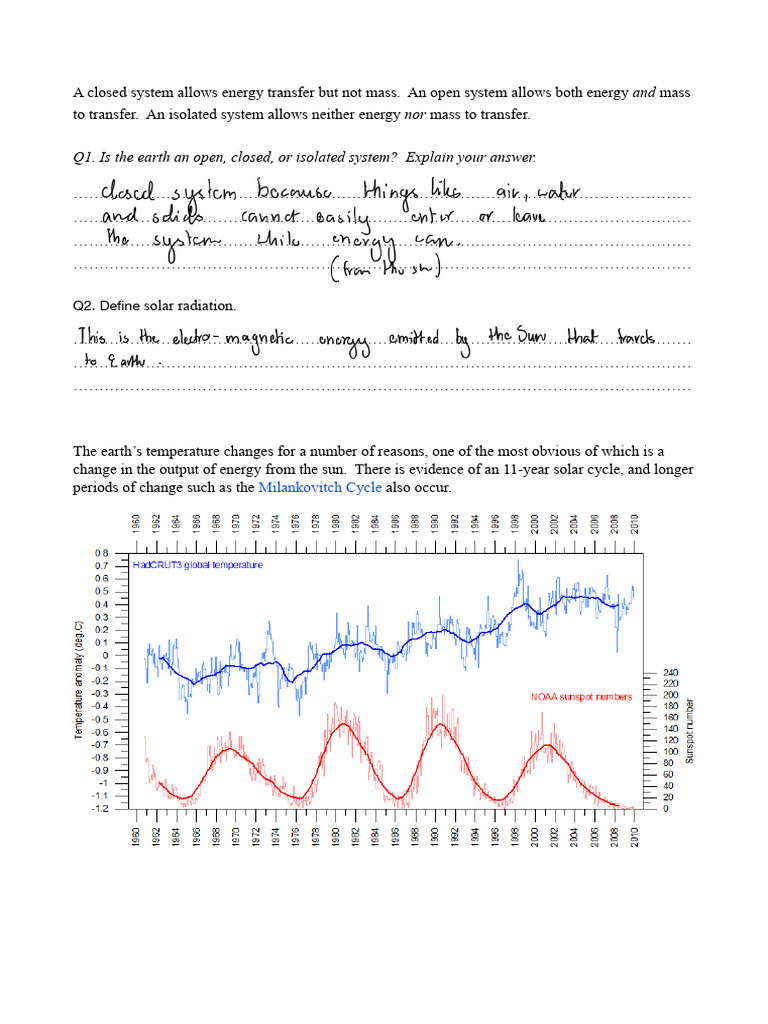 A closed system allows energy transfer but not mass.  An open system allows both energy and mass
to transfer.  An isolated system allows neither energy nor mass to transfer.
Q1. Is the earth an open, closed, or isolated system?  Explain your answer.
closed system because things like air, water
and solids cannot easily enter or leave
the system while energy can.
(from the sun)
Q2. Define solar radiation.
This is the electro-magnetic energy emitted by the Sun that travels
to Earth.
The earth’s temperature changes for a number of reasons, one of the most obvious of which is a
change in the output of energy from the sun.  There is evidence of an 11-year solar cycle, and longer
periods of change such as the Milankovitch Cycle also occur.
1960 1962 1964 1966 1968 1970 1972 1974 1976 1978 1980 1982 1984 1986 1988 1990 1992 1994 1996 1998 2000 2002 2004 2006 2008 2010
HadCRUT3 global temperature
Temperature anomaly (deg.C)
0.8
0.7
0.6
0.5
0.4
0.3
0.2
0.1
0
-0.1
-0.2
-0.3
-0.4
-0.5
-0.6
-0.7
-0.8
-0.9
-1
-1.1
-1.2
NOAA sunspot numbers
240
220
200
180
160
140
120
100
80
60
40
20
0
Sunspot number
1960 1962 1964 1966 1968 1970 1972 1974 1976 1978 1980 1982 1984 1986 1988 1990 1992 1994 1996 1998 2000 2002 2004 2006 2008 2010